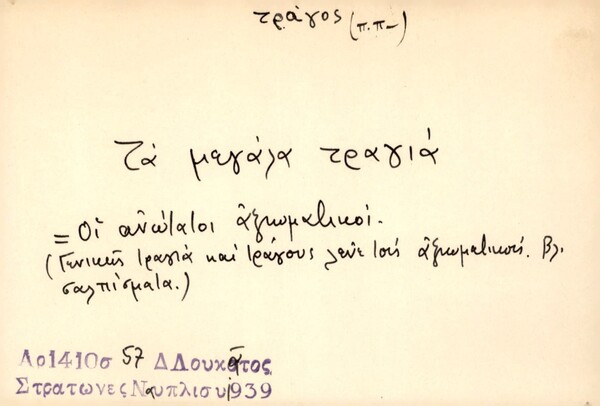 τράγος (π.π-)
Τά μεγάλα τραγιά
= Οἱ ἀνώταιοι ἀξιωματικοί.
(Γενικῶς τραγιά καί τράγους λένε τούς ἀξιωματικούς. βλ.
σαλπίσματα.)
Αρ1410σ 57 ΔΔουκᾶτος
ΣτρατωνεςΝαυπλισυ1939